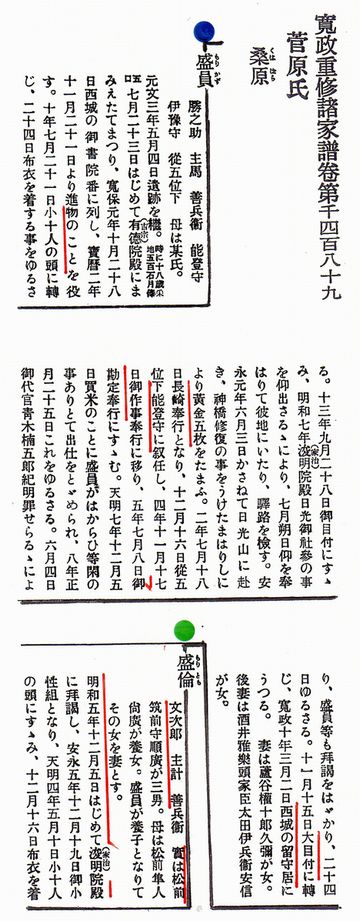 寛政重修諸家譜卷第千四百八十九
菅原氏
桑原
くははら
盛員
もりかず
勝之助　主馬　善兵衞　能登守
伊豫守　從五位下　母は某氏。
元文三年五月四日遺跡を繼。時に十八歳采地五百石月俸
七月二十三日はじめて有德院殿にま
みえたてまつり、寬保元年十月二十八
日西城の御書院番に列し、寶曆二年
十一月二十一日より進物のことを役
す。十年七月二十一日小十人の頭に轉
じ、二十四日布衣を着する事をゆるさ
る。十三年九月二十八日御目付にすゝ
み、明和七年浚明院殿日光御社參の事
を仰出さるゝにより、七月朔日仰を奉
はりて彼地にいたり、驛路を檢す。安
永元年六月三日かさねて日光山に赴
き、神橋修復の事をうけたまはりしに
より黃金五枚をたまふ。二年七月十八
日長崎奉行となり、十二月十六日從五
位下能登守に叙任し、四年十一月十七
日御作事奉行に移り、五年七月八日御
勘定奉行にすゝむ。天明七年十二月五
日買米のことに盛員がはからひ等閑の
事ありとて出仕をとゞめられ、八年正
月二十五日これをゆるさる。六月四日
御代官青木楠五郎紀明罪せらるゝによ
り、盛員等も拜謁をはゞかり、二十四
日ゆるさる。十一月十五日大目付に轉
じ、寛政十年三月二日西城の留守居に
うつる。　妻は蘆谷權十郎久彌が女。
後妻は酒井雅樂頭家臣太田伊兵衞安信
が女。
盛倫
もりとも
文次郎　主計　善兵衞　實は松前
筑前守順廣が三男。母は松前隼人
尙廣が養女。盛員が養子となりて
その女を妻とす。
明和五年十二月五日はじめて浚明院殿
に拜謁し、安永五年十二月十九日御小
性組となり、天明四年五月十日小十人
の頭にすゝみ、十二月十六日布衣を着